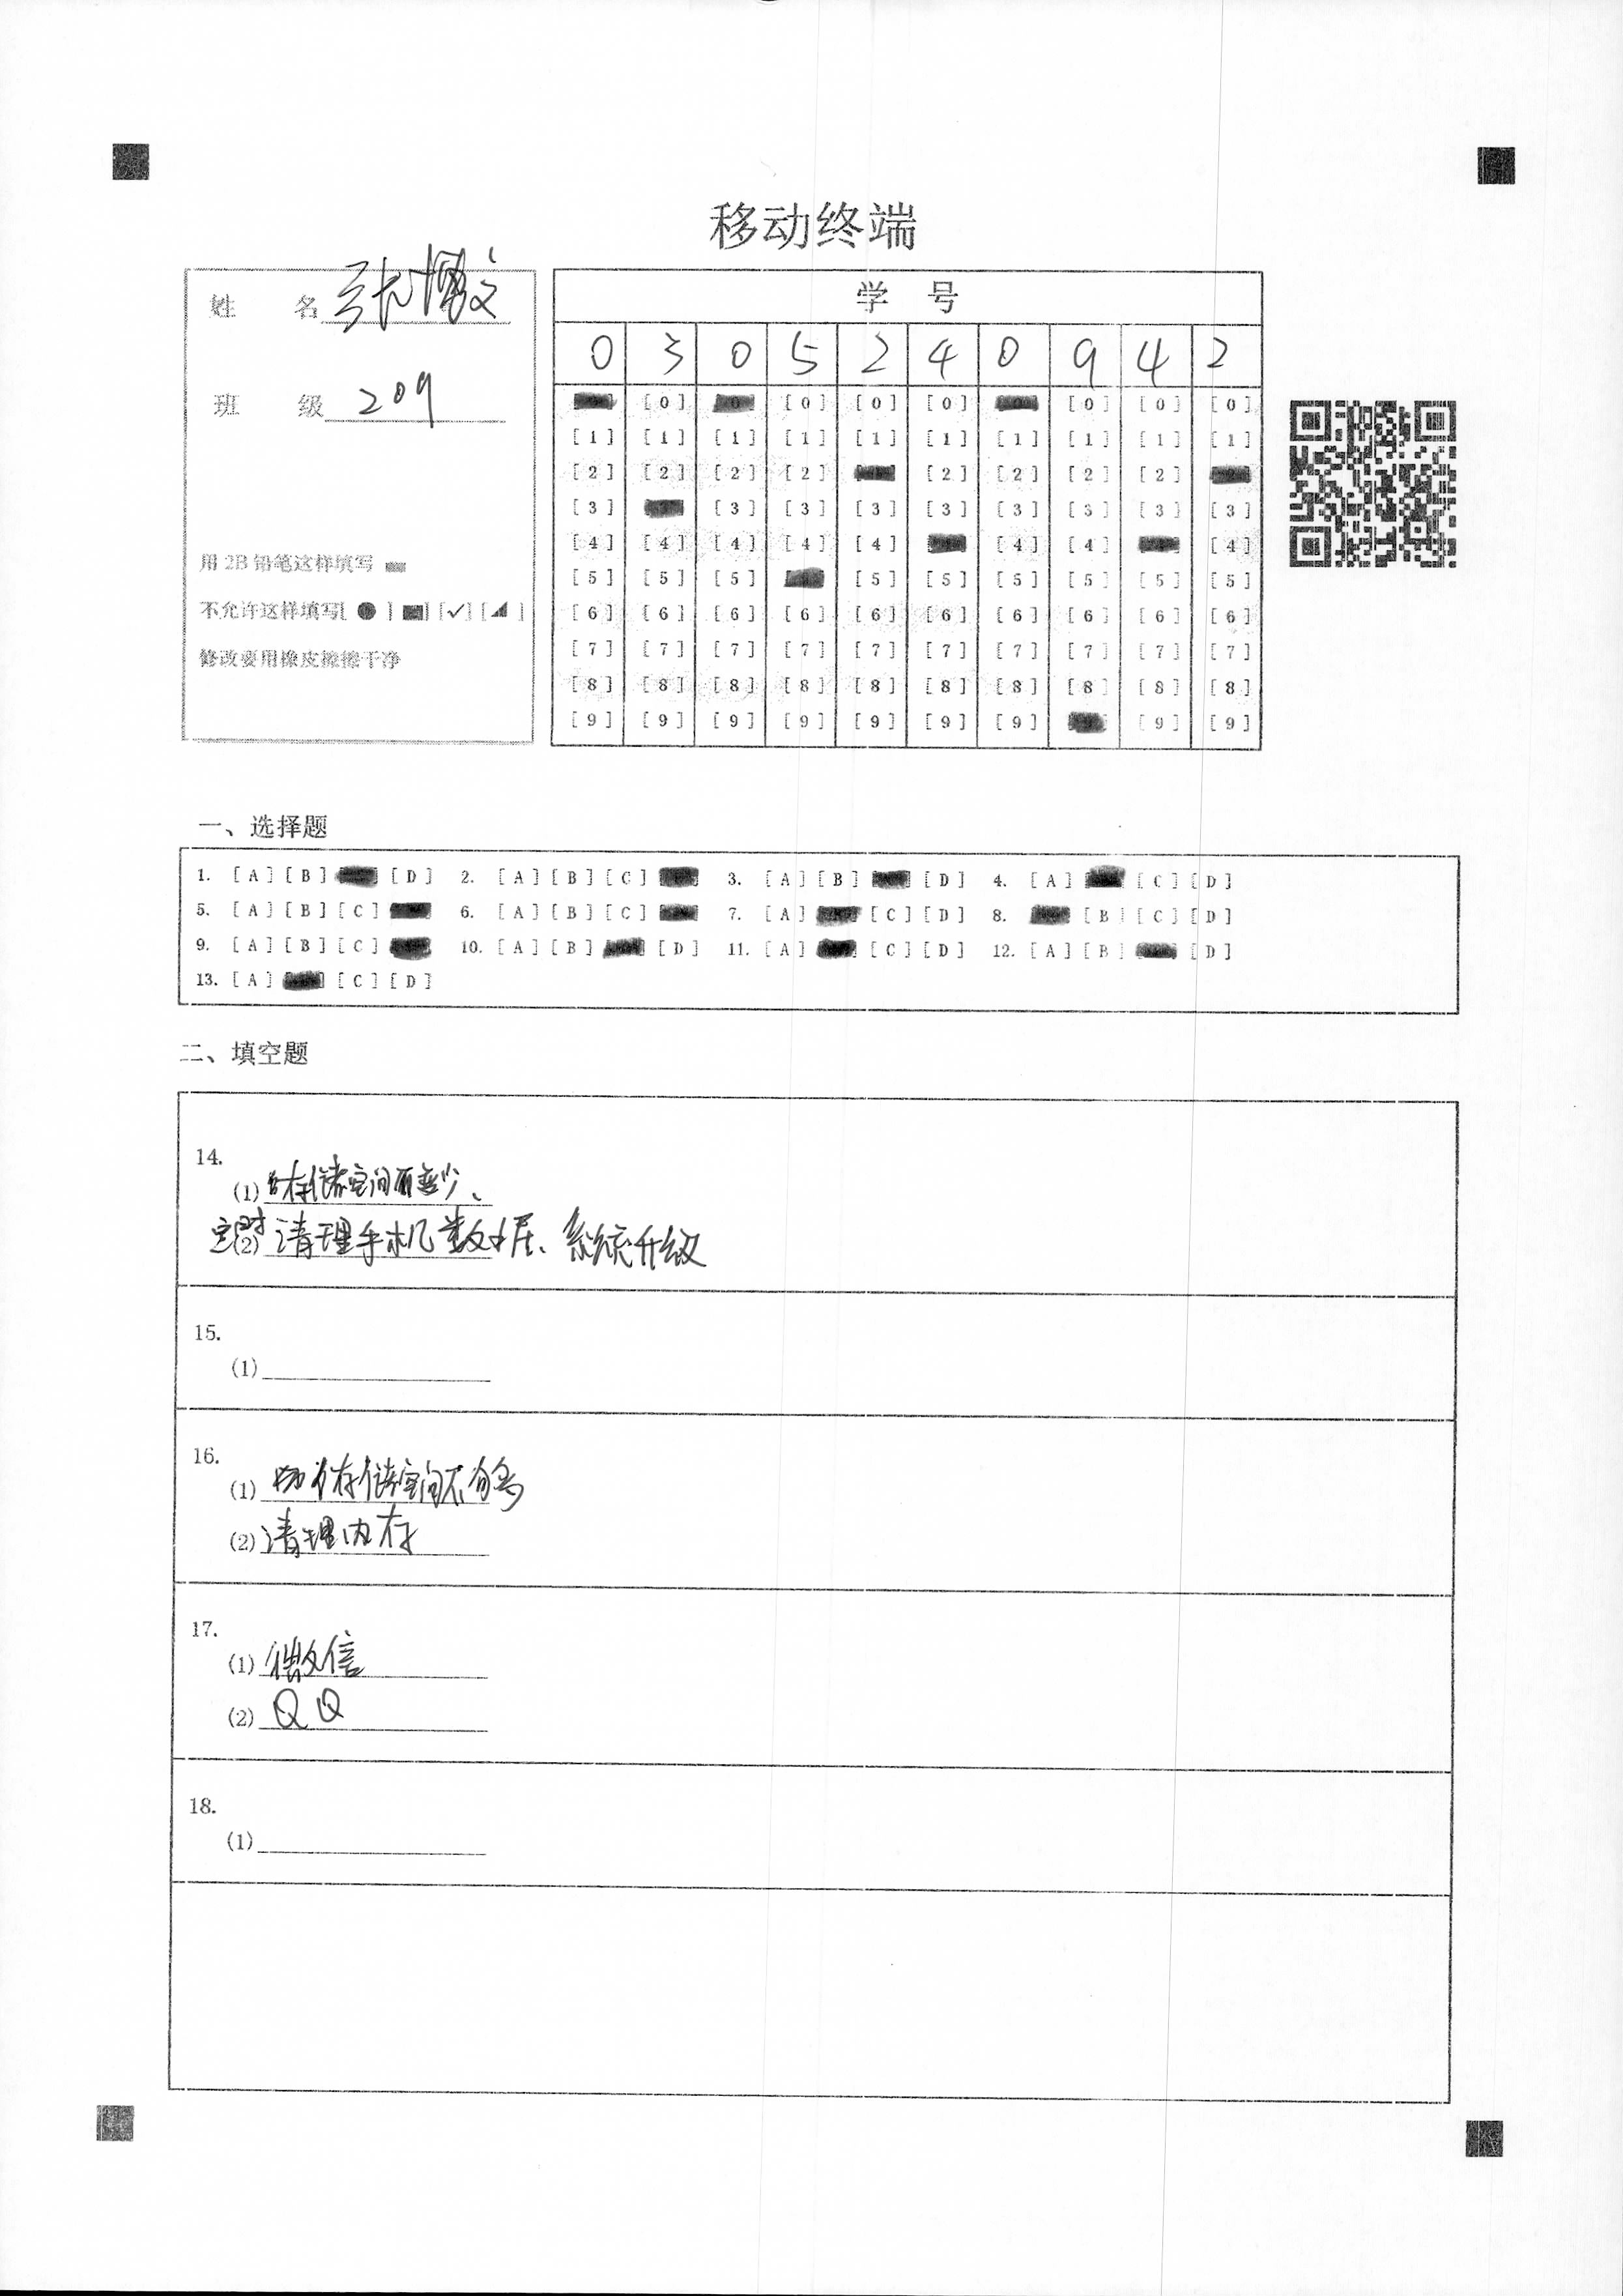 移动终端
姓 名 张博文
班 级 209
用 2B 铅笔这样填写
不允许这样填写[ ] [ ] [✓] [ ]
修改要用橡皮擦擦干净
学 号
0 3 0 5 2 4 0 9 4 2
[0] [0] [0] [0] [0] [0] [0] [0]
[1] [1] [1] [1] [1] [1] [1] [1] [1] [1]
[2] [2] [2] [2] [2] [2] [2] [2]
[3] [3] [3] [3] [3] [3] [3] [3] [3]
[4] [4] [4] [4] [4] [4] [4] [4]
[5] [5] [5] [5] [5] [5] [5] [5] [5]
[6] [6] [6] [6] [6] [6] [6] [6] [6] [6]
[7] [7] [7] [7] [7] [7] [7] [7] [7] [7]
[8] [8] [8] [8] [8] [8] [8] [8] [8] [8]
[9] [9] [9] [9] [9] [9] [9] [9] [9]
一、选择题
1. [A] [B] [D] 2. [A] [B] [C] 3. [A] [B] [D] 4. [A] [C] [D]
5. [A] [B] [C] 6. [A] [B] [C] 7. [A] [C] [D] 8. [B] [C] [D]
9. [A] [B] [C] 10. [A] [B] [D] 11. [A] [C] [D] 12. [A] [B] [D]
13. [A] [C] [D]
二、填空题
14.
(1) 存储空间变少、
(2) 定时清理手机数据、系统升级
15.
(1)
16.
(1) 存储空间不够
(2) 清理内存
17.
(1) 微信
(2) QQ
18.
(1)